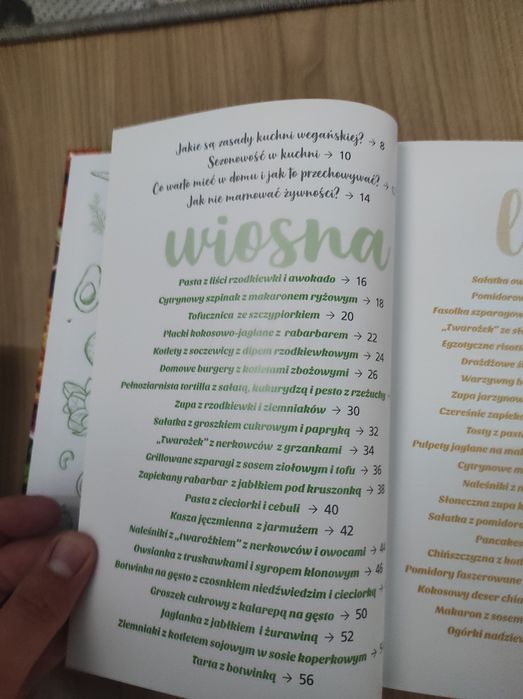 Jakie są zasady kuchni wegańskiej? → 8
Sezonowość w kuchni → 10
Co warto mieć w domu i jak to przechowywać? →
Jak nie marnować żywności? → 14
wiosna
Pasta z liści rzodkiewki i awokado → 16
Cytrynowy szpinak z makaronem ryżowym → 18
Tofucznica ze szczypiorkiem → 20
Placki kokosowo-jaglane z rabarbarem → 22
Kotlety z soczewicy z dipem rzodkiewkowym → 24
Domowe burgery z kotletami zbożowymi → 26
Pełnoziarnista tortilla z sałatą, kukurydzą i pesto z rzeżuchy
Zupa z rzodkiewki i ziemniaków → 30
Sałatka z groszkiem cukrowym i papryką → 32
„Twarożek” z nerkowców z grzankami → 34
Grillowane szparagi z sosem ziołowym i tofu → 36
Zapiekany rabarbar z jabłkiem pod kruszonką → 38
Pasta z cieciorki i cebuli → 40
Kasza jęczmienna z jarmużem → 42
Naleśniki z „twarożkiem” z nerkowców i owocami → 44
Owsianka z truskawkami i syropem klonowym → 46
Botwinka na gęsto z czosnkiem niedźwiedzim i cieciorką →
Groszek cukrowy z kalarepą na gęsto → 50
Jaglanka z jabłkiem i żurawiną → 52
Ziemniaki z kotletem sojowym w sosie koperkowym →
Tarta z botwinką → 56
l
Sałatka ow
Pomidorow
Fasolka szparagow
„Twarożek” ze sł
Egzotyczne risott
Drożdżowe
Warzywny
Zupa jarzynow
Czereśnie zapiek
Tosty z past
Pulpety jaglane na mak
Cytrynowe m
Naleśniki z
Słoneczna zupa k
Sałatka z pomidor
Pancakes
Chińszczyzna z kotl
Pomidory faszerowane
Kokosowy deser chia
Makaron z sosem
Ogórki nadziew